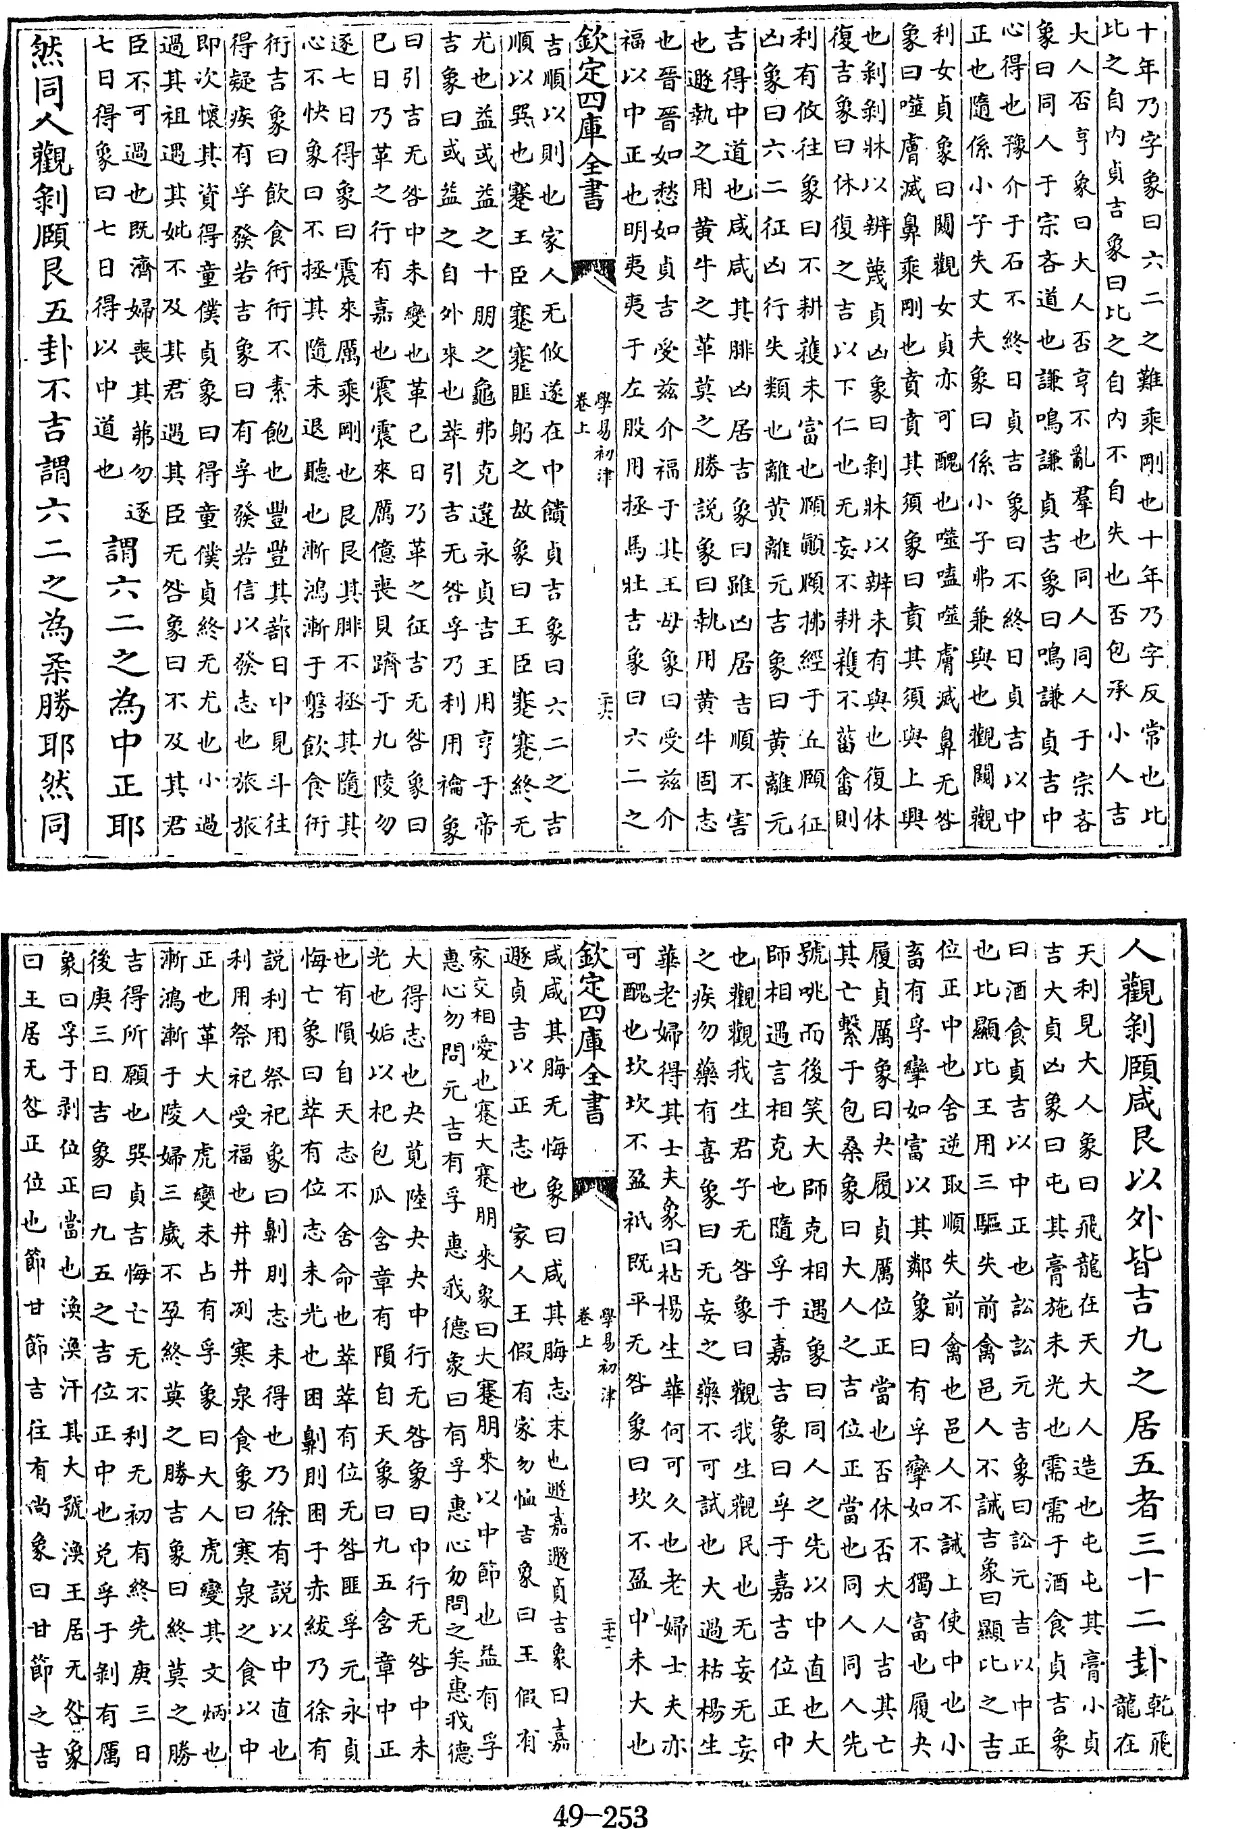 十年乃字象曰六二之難乘剛也十年乃字反常也比
比之自内貞吉象曰比之自内不自失也否包承小人吉
大人否亨象曰大人否亨不亂羣也同人同人于宗吝
象曰同人于宗吝道也謙鳴謙貞吉象曰鳴謙貞吉中
心得也豫介于石不終日貞吉象曰不終日貞吉以中
正也隨係小子失丈夫象曰係小子弗兼與也觀闚觀
利女貞象曰闚觀女貞亦可醜也噬嗑噬膚滅鼻无咎
象曰噬膚滅鼻乘剛也賁賁其須象曰賁其須與上興
也剥剥牀以辨蔑貞凶象曰剥牀以辨未有與也復休
復吉象曰休復之吉以下仁也无妄不耕穫不菑畬則
利有攸往象曰不耕穫未富也頤顚頤拂經于丘頤征
凶象曰六二征凶行失類也離黄離元吉象曰黄離元
吉得中道也咸咸其腓凶居吉象曰雖凶居吉順不害
也遯執之用黄牛之革莫之勝説象曰執用黄牛固志
也晉晉如愁如貞吉受兹介福于其王母象曰受兹介
福以中正也明夷夷于左股用拯馬壯吉象曰六二之
欽定四庫全書
學易初津
卷上
二十六
吉順以則也家人无攸遂在中饋貞吉象曰六二之吉
順以巽也蹇王臣蹇蹇匪躬之故象曰王臣蹇蹇終无
尤也益或益之十朋之龜弗克違永貞吉王用亨于帝
吉象曰或益之自外來也萃引吉无咎孚乃利用禴象
曰引吉无咎中未變也革已日乃革之征吉无咎象曰
已日乃革之行有嘉也震震來厲億喪貝躋于九陵勿
逐七日得象曰震來厲乘剛也艮艮其腓不拯其隨其
心不快象曰不拯其隨未退聽也漸鴻漸于磐飲食衎
衎吉象曰飲食衎衎不素飽也豐豐其蔀日中見斗往
得疑疾有孚發若吉象曰有孚發若信以發志也旅旅
即次懷其資得童僕貞象曰得童僕貞終无尤也小過
過其祖遇其妣不及其君遇其臣无咎象曰不及其君
臣不可過也既濟婦喪其茀勿逐
七日得象曰七日得以中道也
謂六二之為中正耶
然同人觀剝頤艮五卦不吉謂六二之為柔勝耶然同
人觀剝頤咸艮以外皆吉九之居五者三十二卦
乾飛
龍在
天利見大人象曰飛龍在天大人造也屯屯其膏小貞
吉大貞凶象曰屯其膏施未光也需需于酒食貞吉象
曰酒食貞吉以中正也訟訟元吉象曰訟元吉以中正
也比顯比王用三驅失前禽邑人不誡吉象曰顯比之吉
位正中也舍逆取順失前禽也邑人不誡上使中也小
畜有孚攣如富以其鄰象曰有孚攣如不獨富也履夬
履貞厲象曰夬履貞厲位正當也否休否大人吉其亡
其亡繫于包桑象曰大人之吉位正當也同人同人先
號咷而後笑大師克相遇象曰同人之先以中直也大
師相遇言相克也隨孚于嘉吉象曰孚于嘉吉位正中
也觀觀我生君子无咎象曰觀我生觀民也无妄无妄
之疾勿藥有喜象曰无妄之藥不可試也大過枯楊生
華老婦得其士夫象曰枯楊生華何可久也老婦士夫亦
可醜也坎坎不盈祇既平无咎象曰坎不盈中未大也
欽定四庫全書
學易初津
卷上
二十七
咸咸其脢无悔象曰咸其脢志末也遯嘉遯貞吉象曰嘉
遯貞吉以正志也家人王假有家勿恤吉象曰王假有
家交相愛也蹇大蹇朋來象曰大蹇朋來以中節也益有孚
惠心勿問元吉有孚惠我德象曰有孚惠心勿問之矣惠我德
大得志也夬莧陸夬夬中行无咎象曰中行无咎中未
光也姤以杞包瓜含章有隕自天象曰九五含章中正
也有隕自天志不舍命也萃萃有位无咎匪孚元永貞
悔亡象曰萃有位志未光也困劓刖困于赤紱乃徐有
説利用祭祀象曰劓刖志未得也乃徐有説以中直也
利用祭祀受福也井井冽寒泉食象曰寒泉之食以中
正也革大人虎變未占有孚象曰大人虎變其文炳也
漸鴻漸于陵婦三歲不孕終莫之勝吉象曰終莫之勝
吉得所願也巽貞吉悔亡无不利无初有終先庚三日
後庚三日吉象曰九五之吉位正中也兌孚于剥有厲
象曰孚于剥位正當也渙渙汗其大號渙王居无咎象
曰王居无咎正位也節甘節吉往有尚象曰甘節之吉
49-253